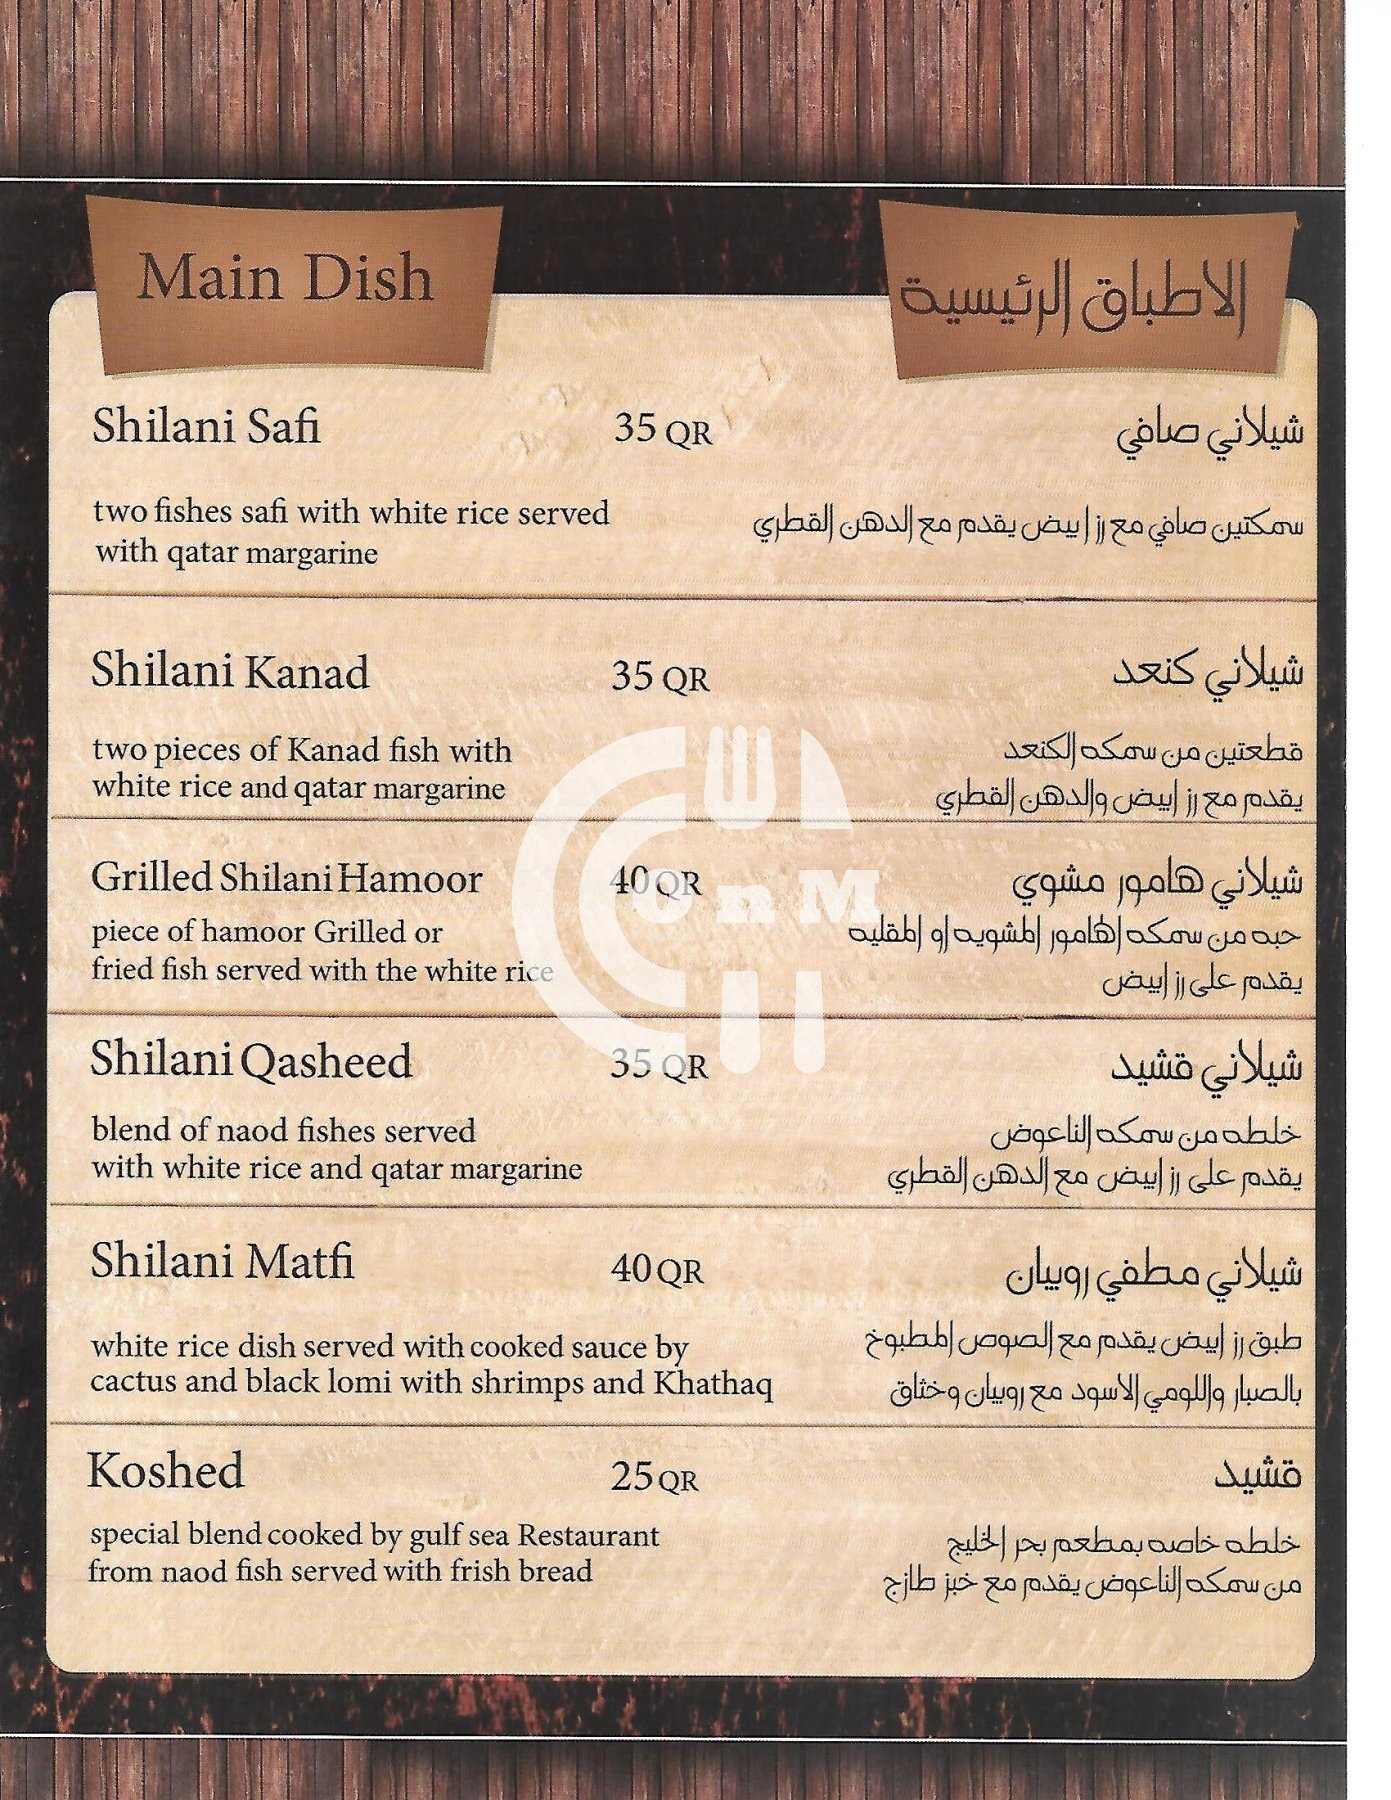 Main Dish
الاطباق الرئيسية
Shilani Safi
35 QR
شيلاني صافي
two fishes safi with white rice served
with qatar margarine
سمكتين صافي مع رز ابيض يقدم مع الدهن القطري
Shilani Kanad
35 QR
شيلاني كنعد
two pieces of Kanad fish with
white rice and qatar margarine
قطعتين من سمكه الكنعد
يقدم مع رز ابيض والدهن القطري
Grilled Shilani Hamoor
40 QR
شيلاني هامور مشوي
piece of hamoor Grilled or
fried fish served with the white rice
حبه من سمكه الهامور المشويه او المقليه
يقدم على رز ابيض
OnM
Shilani Qasheed
35 QR
شيلاني قشيد
blend of naod fishes served
with white rice and qatar margarine
خلطه من سمكه الناعوض
يقدم على رز ابيض مع الدهن القطري
Shilani Matfi
40 QR
شيلاني مطفي روبيان
white rice dish served with cooked sauce by
cactus and black lomi with shrimps and Khathaq
طبق رز ابيض يقدم مع الصوص المطبوخ
بالصبار واللومي الاسود مع روبيان وخثاق
Koshed
25 QR
قشيد
special blend cooked by gulf sea Restaurant
from naod fish served with frish bread
خلطه خاصه بمطعم بحر الخليج
من سمكه الناعوض يقدم مع خبز طازج